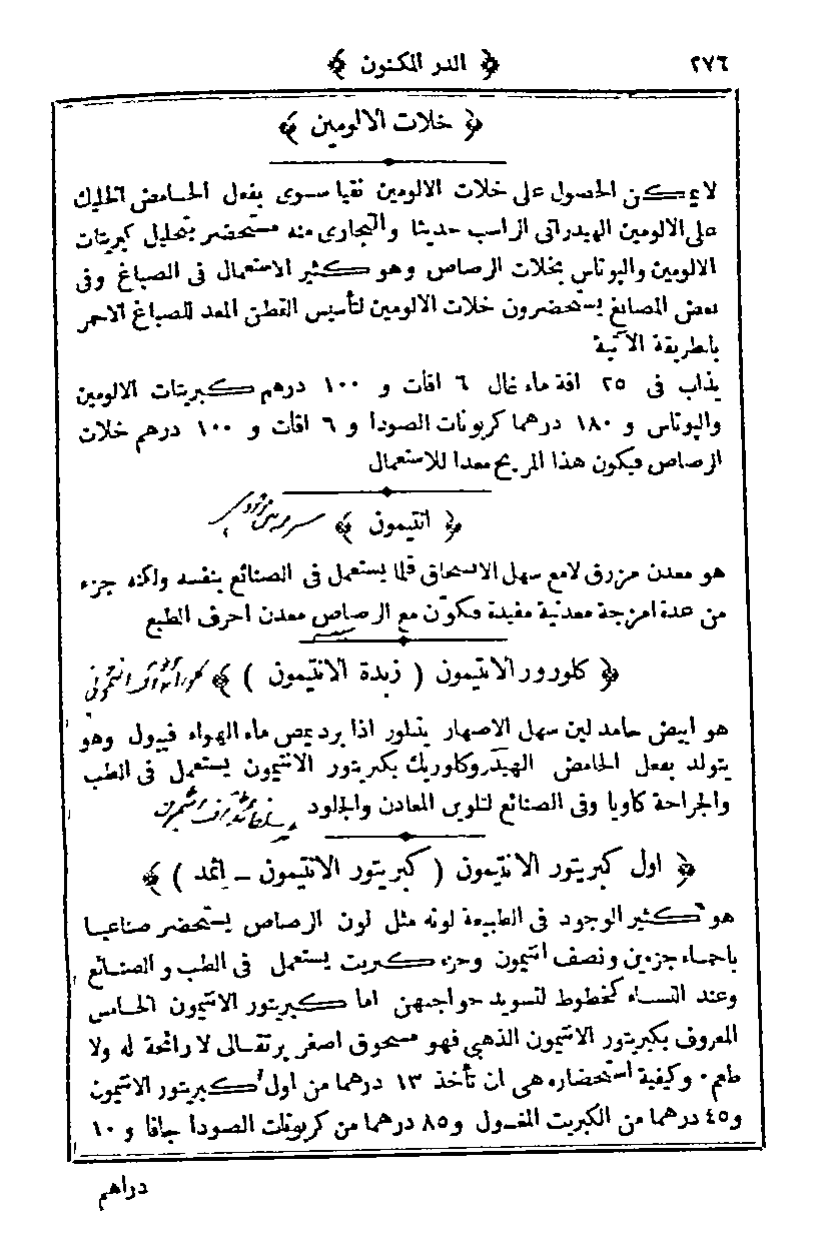 ٢٧٦
﴿ الدر المكنون ﴾
﴿ خلات الالومين ﴾
لا يمكن الحصول على خلات الالومين نقيا سوى بفعل الحامض الخليك
على الالومين الهيدراتى الراسب حديثا والتجارى منه مستحضر بتحليل كبريتات
الالومين والپوتاس بخلات الرصاص وهو كثير الاستعمال فى الصباغ وفى
بعض المصابغ يستحضرون خلات الالومين لتأسيس القطن المعد للصباغ الاحمر
بالطريقة الآتية
يذاب فى ٢٥ اقة ماء غال ٦ اقات و ١٠٠ درهم كبريتات الالومين
والپوتاس و ١٨٠ درهما كربونات الصودا و ٦ اقات و ١٠٠ درهم خلات
الرصاص فيكون هذا المزيج معدا للاستعمال
﴿ انتيمون ﴾
هو معدن مزرق لامع سهل الانسحاق قلما يستعمل فى الصنائع بنفسه ولكنه جزء
من عدة امزجة معدنية مفيدة فيكوّن مع الرصاص معدن احرف الطبع
﴿ كلورور الانتيمون ( زبدة الانتيمون ) ﴾
هو ابيض جامد لين سهل الاصهار يتبلور اذا برد يمص ماء الهواء فيبول وهو
يتولد بفعل الحامض الهيدروكلوريك بكبريتور الانتيمون يستعمل فى الطب
والجراحة كاويا وفى الصنائع لتلوين المعادن والجلود
﴿ اول كبريتور الانتيمون ( كبريتور الانتيمون ـ اثمد ) ﴾
هو كثير الوجود فى الطبيعة لونه مثل لون الرصاص يستحضر صناعيا
باحماء جزءين ونصف انتيمون وجزء كبريت يستعمل فى الطب و الصنائع
وعند النساء كخطوط لتسويد حواجبهن اما كبريتور الانتيمون الخامس
المعروف بكبريتور الانتيمون الذهبي فهو مسحوق اصفر برتقالى لا رائحة له ولا
طعم٠ وكيفية استحضاره هى ان تأخذ ١٣ درهما من اول كبريتور الانتيمون
و٤٥ درهما من الكبريت المغسول و٨٥ درهما من كربونات الصودا جافا و ١٠
دراهم